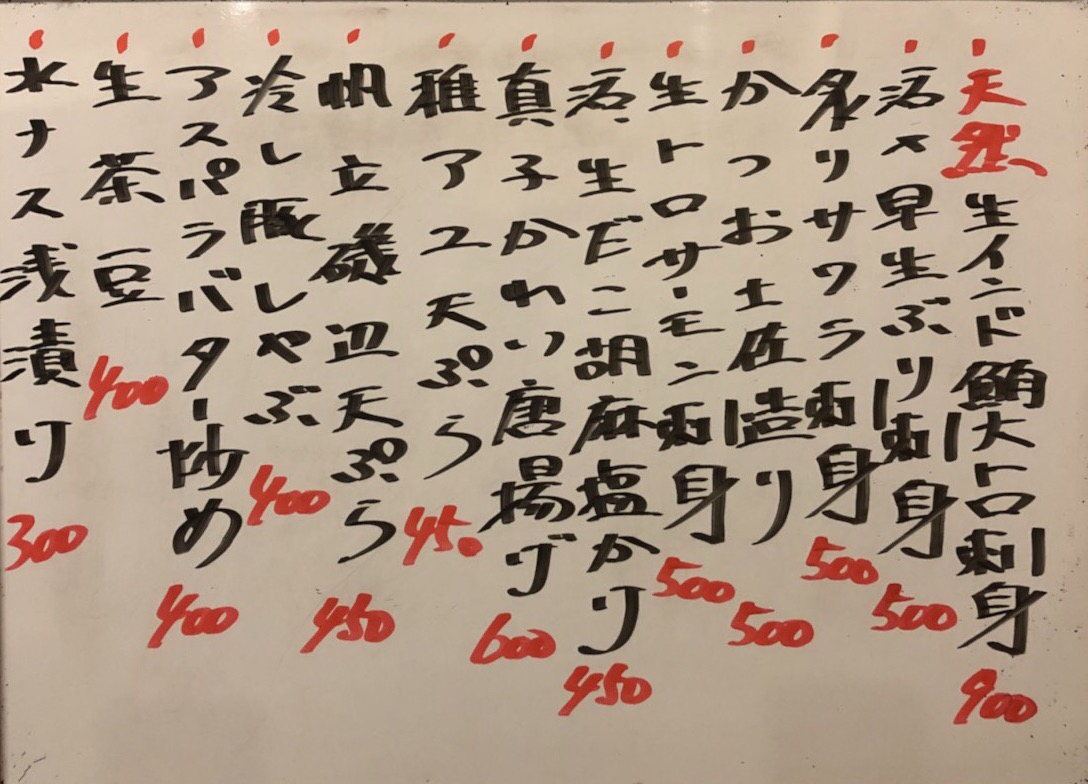 天然生インド鮪大トロ刺身 900
活〆早生ぶり刺身 500
炙りサワラ刺身 500
かつお土佐造り 500
生トロサーモン刺身 500
活生だこ胡麻塩かり 450
真子かれい唐揚げ 600
稚アユ天ぷら 450
帆立磯辺天ぷら 450
冷し豚しゃぶ 400
アスパラバター炒め 400
生茶豆 400
水ナス浅漬り 300